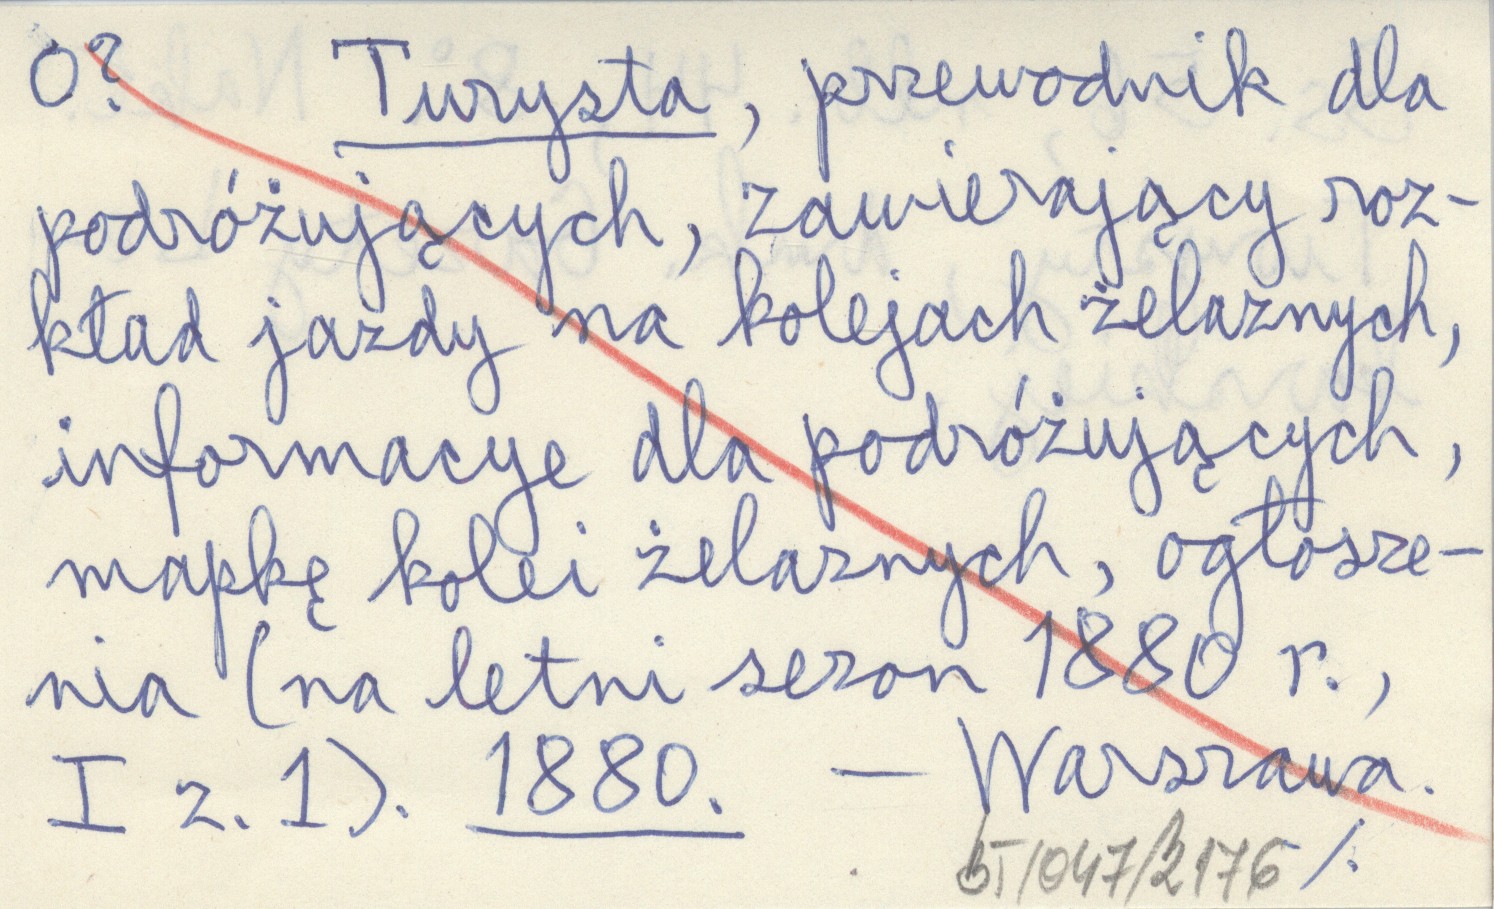 O? Turysta, przewodnik dla
podróżujących, zawierający roz-
kład jazdy na kolejach żelaznych,
informacye dla podróżujących,
mapkę kolei żelaznych, ogłosze-
nia (na letni sezon 1880 r.,
I z. 1). 1880. — Warszawa.
BT/047/2176 /.